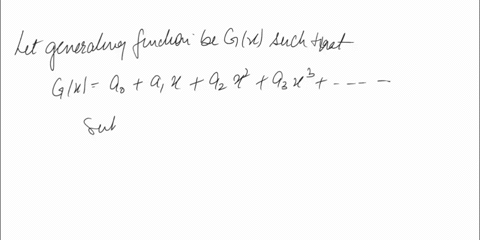 Let generating function be G(x) such that
G(x) = a₀ + a₁x + a₂x² + a₃x³ + - - - - -
Sub